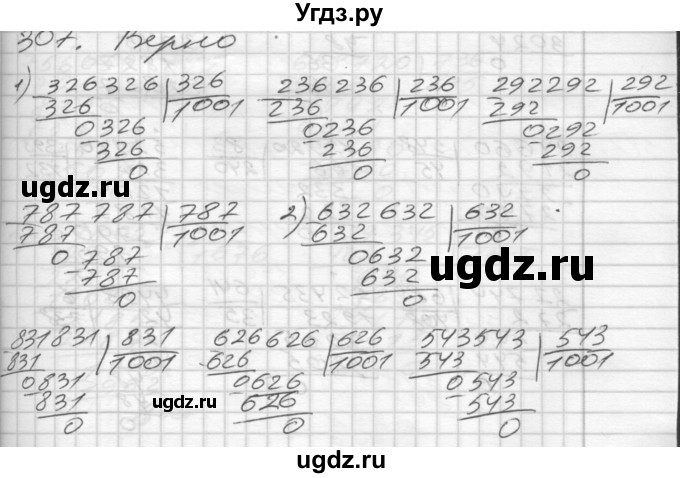 Угдз.ру
307. Верно
1) 326326 326 236236 236 292292 292
326 1001 236 1001 292 1001
0326 0236 0292
-326 -236 -292
0 0 0
ugdz.ru
787787 787 2) 632632 632
787 1001 632 1001
0787 0632 ugdz.ru
-787 632
0 0
831831 831 626626 626 543543 543
831 1001 626 1001 543 1001
0831 0626 0543
831 626 543
0 0 0
ugdz.ru
ugdz.ru